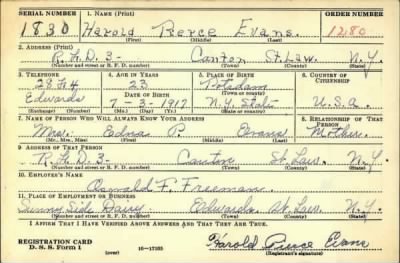 SERIAL NUMBER 1. NAME (Print) ORDER NUMBER
1830 Harold Pierce Evans. 1280
(First) (Middle) (Last)
2. ADDRESS (Print)
R.F.D. 3- Canton St. Law. N.Y.
(Number and street or R. F. D. number) (Town) (County) (State)
3. TELEPHONE 4. AGE IN YEARS 5. PLACE OF BIRTH 6. COUNTRY OF CITIZENSHIP
28 F 4 23 Potsdam
DATE OF BIRTH (Town or county)
Edwards 7-3-1917 N.Y. State U.S.A.
(Exchange) (Number) (Mo.) (Day) (Yr.) (State or country)
7. NAME OF PERSON WHO WILL ALWAYS KNOW YOUR ADDRESS 8. RELATIONSHIP OF THAT PERSON
Mrs. Edna P. Evans Mother
(Mr., Mrs., Miss) (First) (Middle) (Last)
9. ADDRESS OF THAT PERSON
R.F.D. 3- Canton St. Law. N.Y.
(Number and street or R. F. D. number) (Town) (County) (State)
10. EMPLOYER'S NAME
Oswald F. Freeman.
11. PLACE OF EMPLOYMENT OR BUSINESS
Sunny Side Dairy. Edwards St. Law. N.Y.
(Number and street or R. F. D. number) (Town) (County) (State)
I AFFIRM THAT I HAVE VERIFIED ABOVE ANSWERS AND THAT THEY ARE TRUE.
REGISTRATION CARD
D. S. S. Form 1 (over) 16-17105 Harold Pierce Evans
(Registrant's signature)